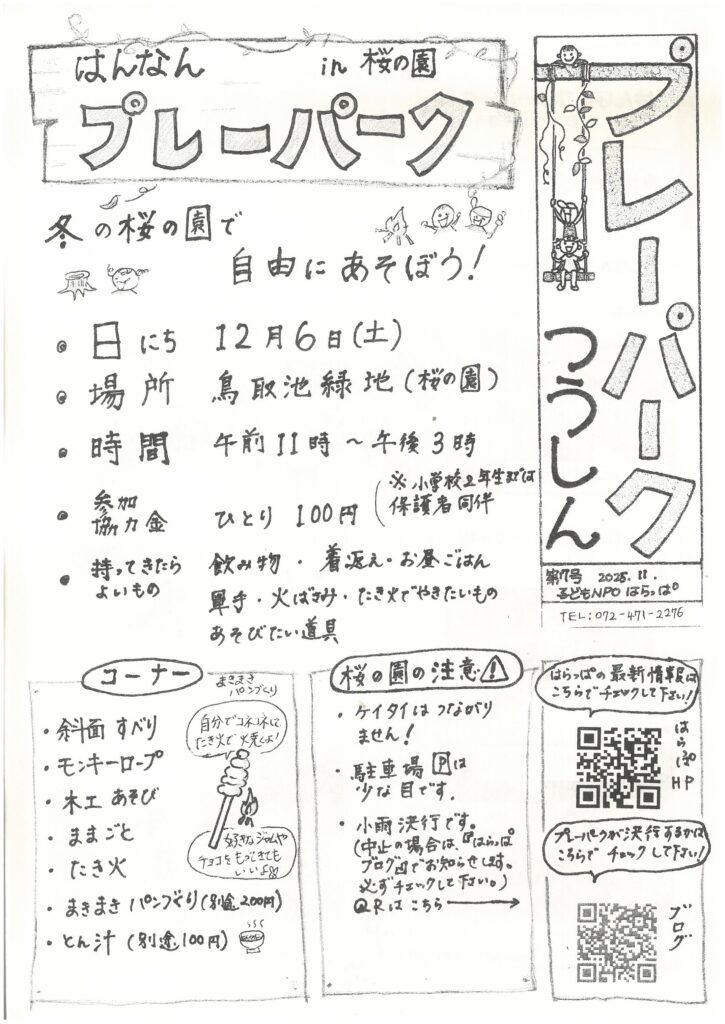 はんなん in 桜の園
プレーパーク
冬の桜の園で
自由にあそぼう!
・日にち 12月6日(土)
・場所 鳥取池緑地(桜の園)
・時間 午前11時～午後3時
・参加協力金 ひとり 100円 (※小学校2年生までは保護者同伴
・持ってきたらよいもの 飲み物・着返え・お昼ごはん
軍手・火ばさみ・たき火でやきたいもの
あそびたい道具
プレーパーク
つうしん
第17号 2025.11.
子どもNPOはらっぱ
TEL:072-471-2276
コーナー
・斜面すべり
・モンキーロープ
・木工あそび
・ままごと
・たき火
・まきまきパンづくり(別途200円)
・とん汁(別途100円)
まきまき
パンづくり
自分でコネコネして
たき火で焼くよ!
好きなジャムや
チョコをもってきても
いいよ
桜の園の注意
・ケイタイはつながり
ません!
・駐車場Pは
少な目です。
・小雨決行です。
(中止の場合は、『はらっぱ
ブログ』でお知らせします。
必ずチェックして下さい。)
QRはこちら→
はらっぱの最新情報は
こちらでチェックして下さい!
はらっぱHP
プレーパークが決行するかは
こちらでチェックして下さい!
ブログ